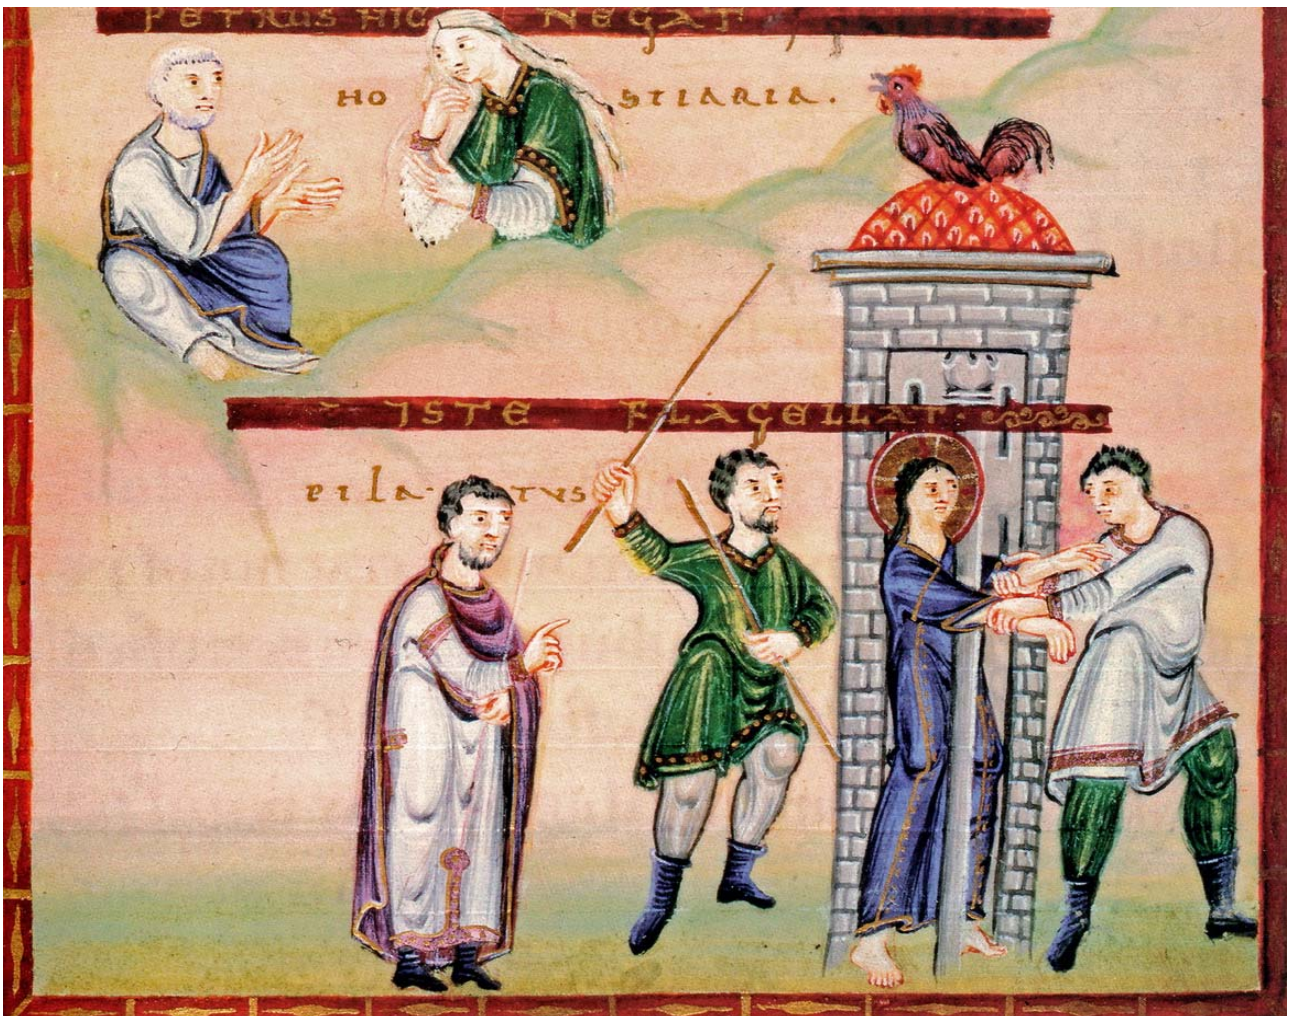 PETRUS HIC NEGAT
HO STIARIA.
ISTE FLAGELLAT.
PILA TVS